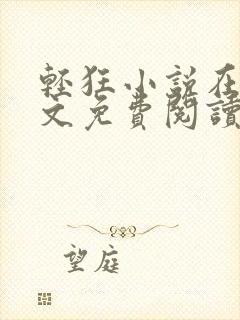 輕狂小說在
文免費閱讀
望庭